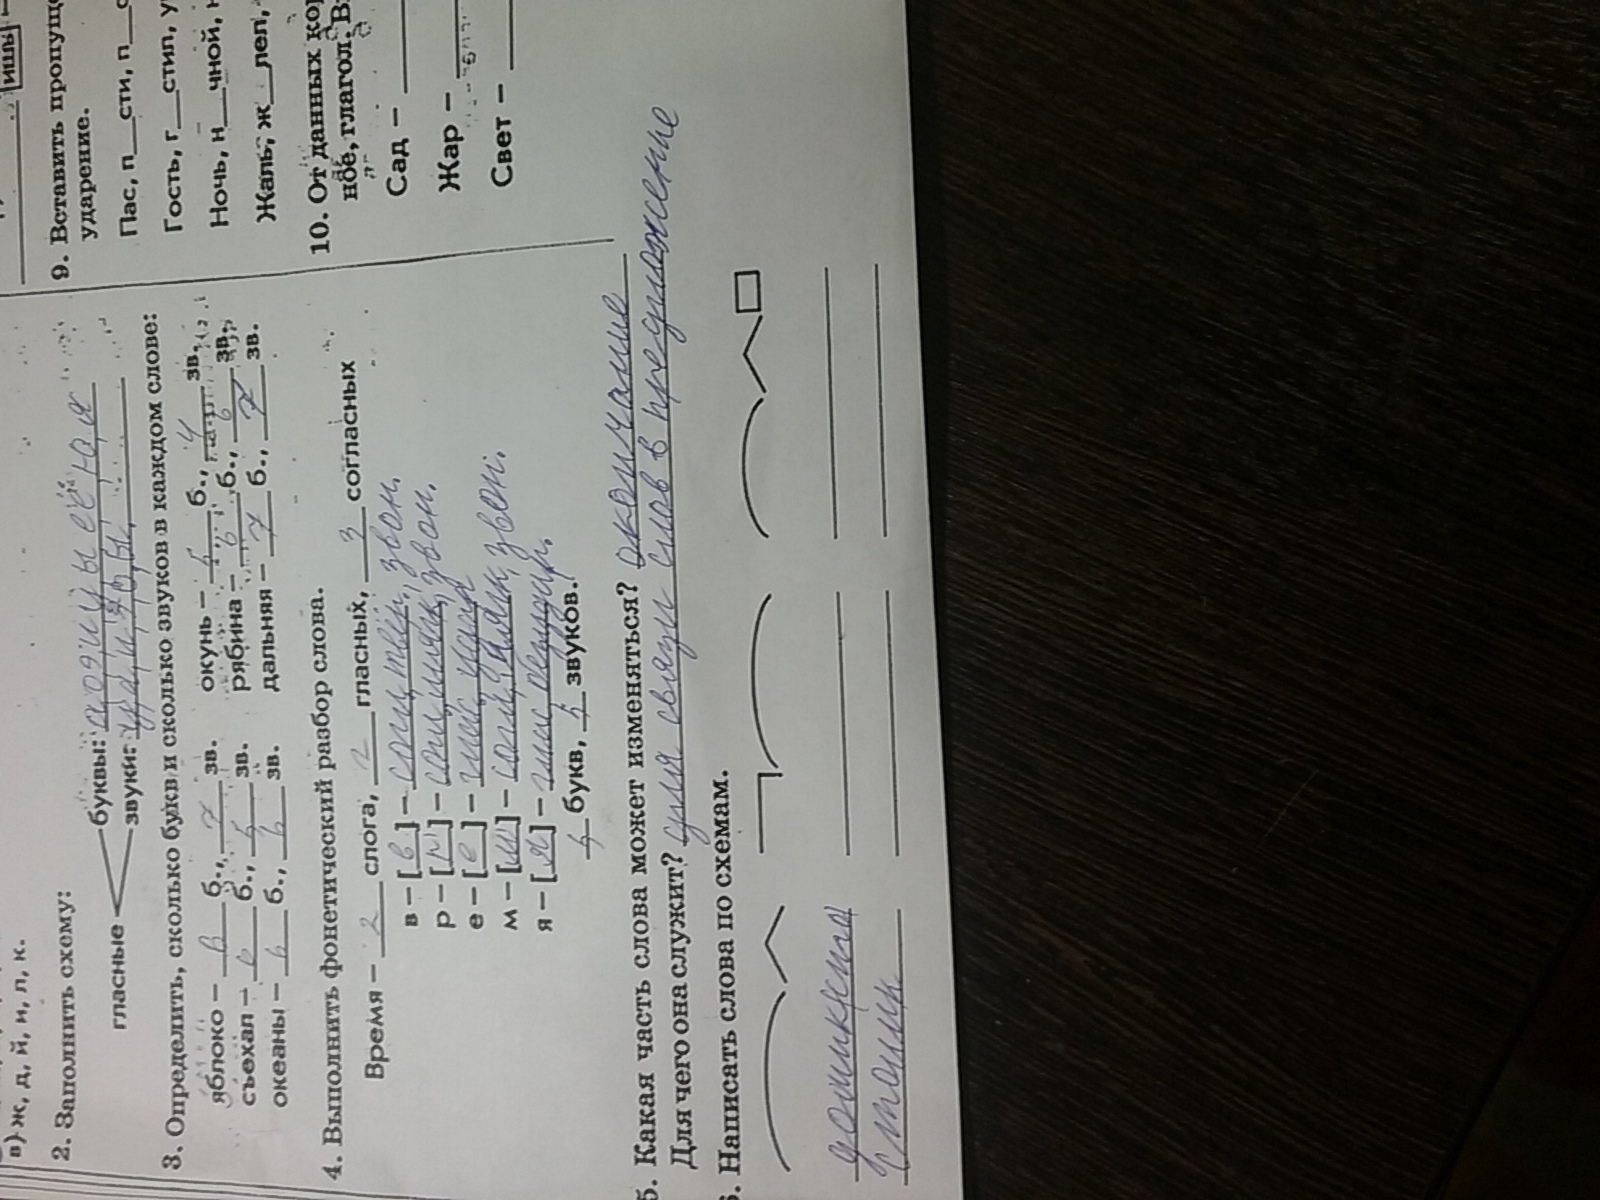 в) ж, д, й, н, л, к.
2. Заполнить схему:
гласные
буквы: а о э и у ы е ё ю я
звуки: у, а, и, э, о, ы
3. Определить, сколько букв и сколько звуков в каждом слове:
яблоко – 6 б., 7 зв.
съехал – 6 б., 5 зв.
океаны – 6 б., 6 зв.
окунь – 5 б., 4 зв.,
рябина – 6 б., 6 зв.,
дальняя – 7 б., 7 зв.
4. Выполнить фонетический разбор слова.
Время – 2 слога, 2 гласных, 3 согласных
в – [в] – согл, звон.
р – [р'] – согл, мягк, звон.
е – [е] – глас,
м – [м'] – согл, мягк, звон.
я – [я] – глас
5 букв, 5 звуков.
5. Какая часть слова может изменяться? окончание
Для чего она служит? для связи слов в предложение
6. Написать слова по схемам.
столик
ишы
9. Вставить пропущ
ударение.
Пас, п__сти, п__с
Гость, г__стил, у
Ночь, н__чной, н
Жаль, ж__лел,
10. От данных кор
ное, глагол. В
Сад –
Жар –
Свет –